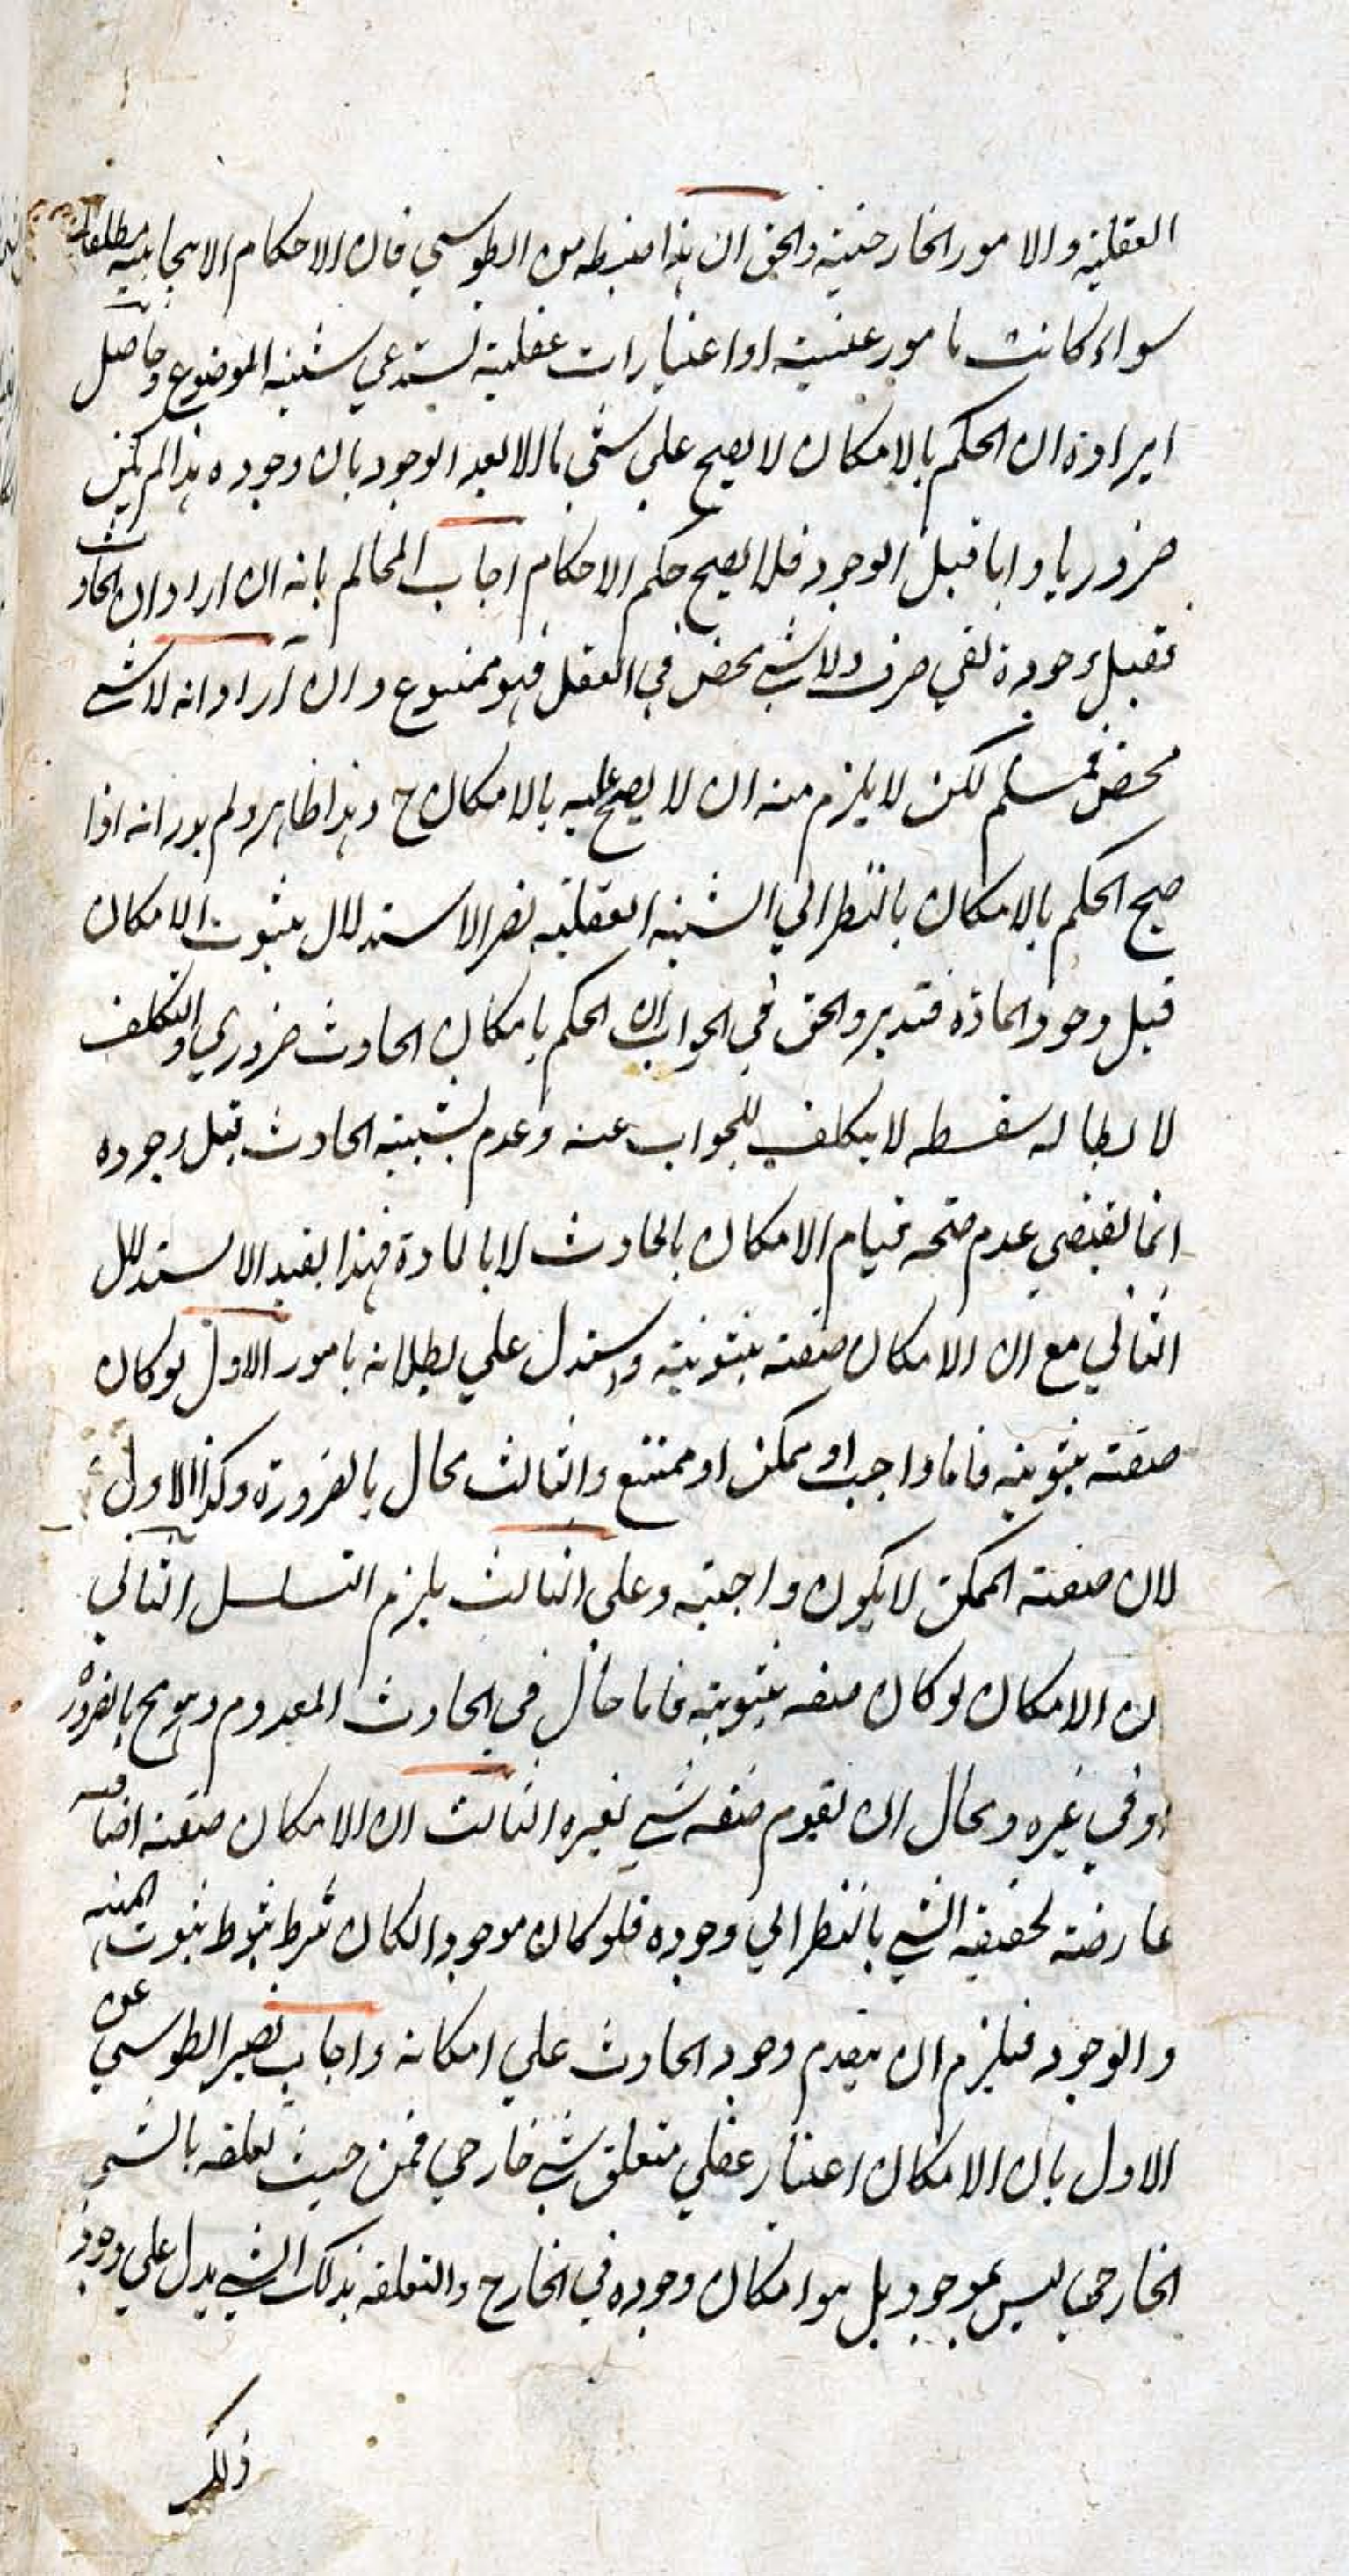 العقلية والامور الخارجية والحق ان هذا من الطوسي فان الاحكام الايجابية مطلقا
سواء كانت بامور عينية او اعتبارات عقلية تستدعي شيئية الموضوع وحاصل
ايراده ان الحكم بالامكان لا يصح على شئ الا بعد الوجود بان وجوده هذا لم يكن
ضروريا واما قبل الوجود فلا يصح حكم الاحكام اجاب المحاكم بانه ان اراد ان الحادث
قبل وجوده نفي صرف ولا شئ محض في العقل فهو ممنوع وان اراد انه لا شئ
محض فمسلم لكن لا يلزم منه ان لا يصح عليه بالامكان ح وهذا ظاهر ولم يدر انه اذا
صح الحكم بالامكان بالنظر الى الشيئية العقلية يضر الاستدلال بثبوت الامكان
قبل وجود المادة فتدبر والحق في الجواب ان الحكم بامكان الحادث ضروري والتكلف
لابطاله سفسطه لا يتكلف للجواب عنه وعدم شيئية الحادث قبل وجوده
انما يقتضي عدم صحة قيام الامكان بالحادث لا بالمادة فهذا يفيد الاستدلال
الثاني مع ان الامكان صفة ثبوتية واستدل على بطلانه بامور الاول لو كان
صفة ثبوتية فاما واجب او ممكن او ممتنع والثالث محال بالضرورة وكذا الاول
لان صفة الممكن لا يكون واجبة وعلى الثالث يلزم التسلسل الثاني
ان الامكان لو كان صفة ثبوتية فاما حال في الحادث المعدوم وهو مح بالضرورة
او في غيره ومحال ان تقوم صفة شئ بغيره الثالث ان الامكان صفة اضافية
عارضة لحقيقة الشئ بالنظر الى وجوده فلو كان موجودا لكان شرط ثبوته ثبوت المهية
والوجود فيلزم ان يتقدم وجود الحادث على امكانه واجاب نصير الطوسي عن
الاول بان الامكان اعتبار عقلي متعلق بشئ خارجي فمن حيث تعلقه بالشئ
الخارجي ليس بموجود بل هو امكان وجوده في الخارج والتعلقه بذلك الشئ يدل على وجود
ذلك